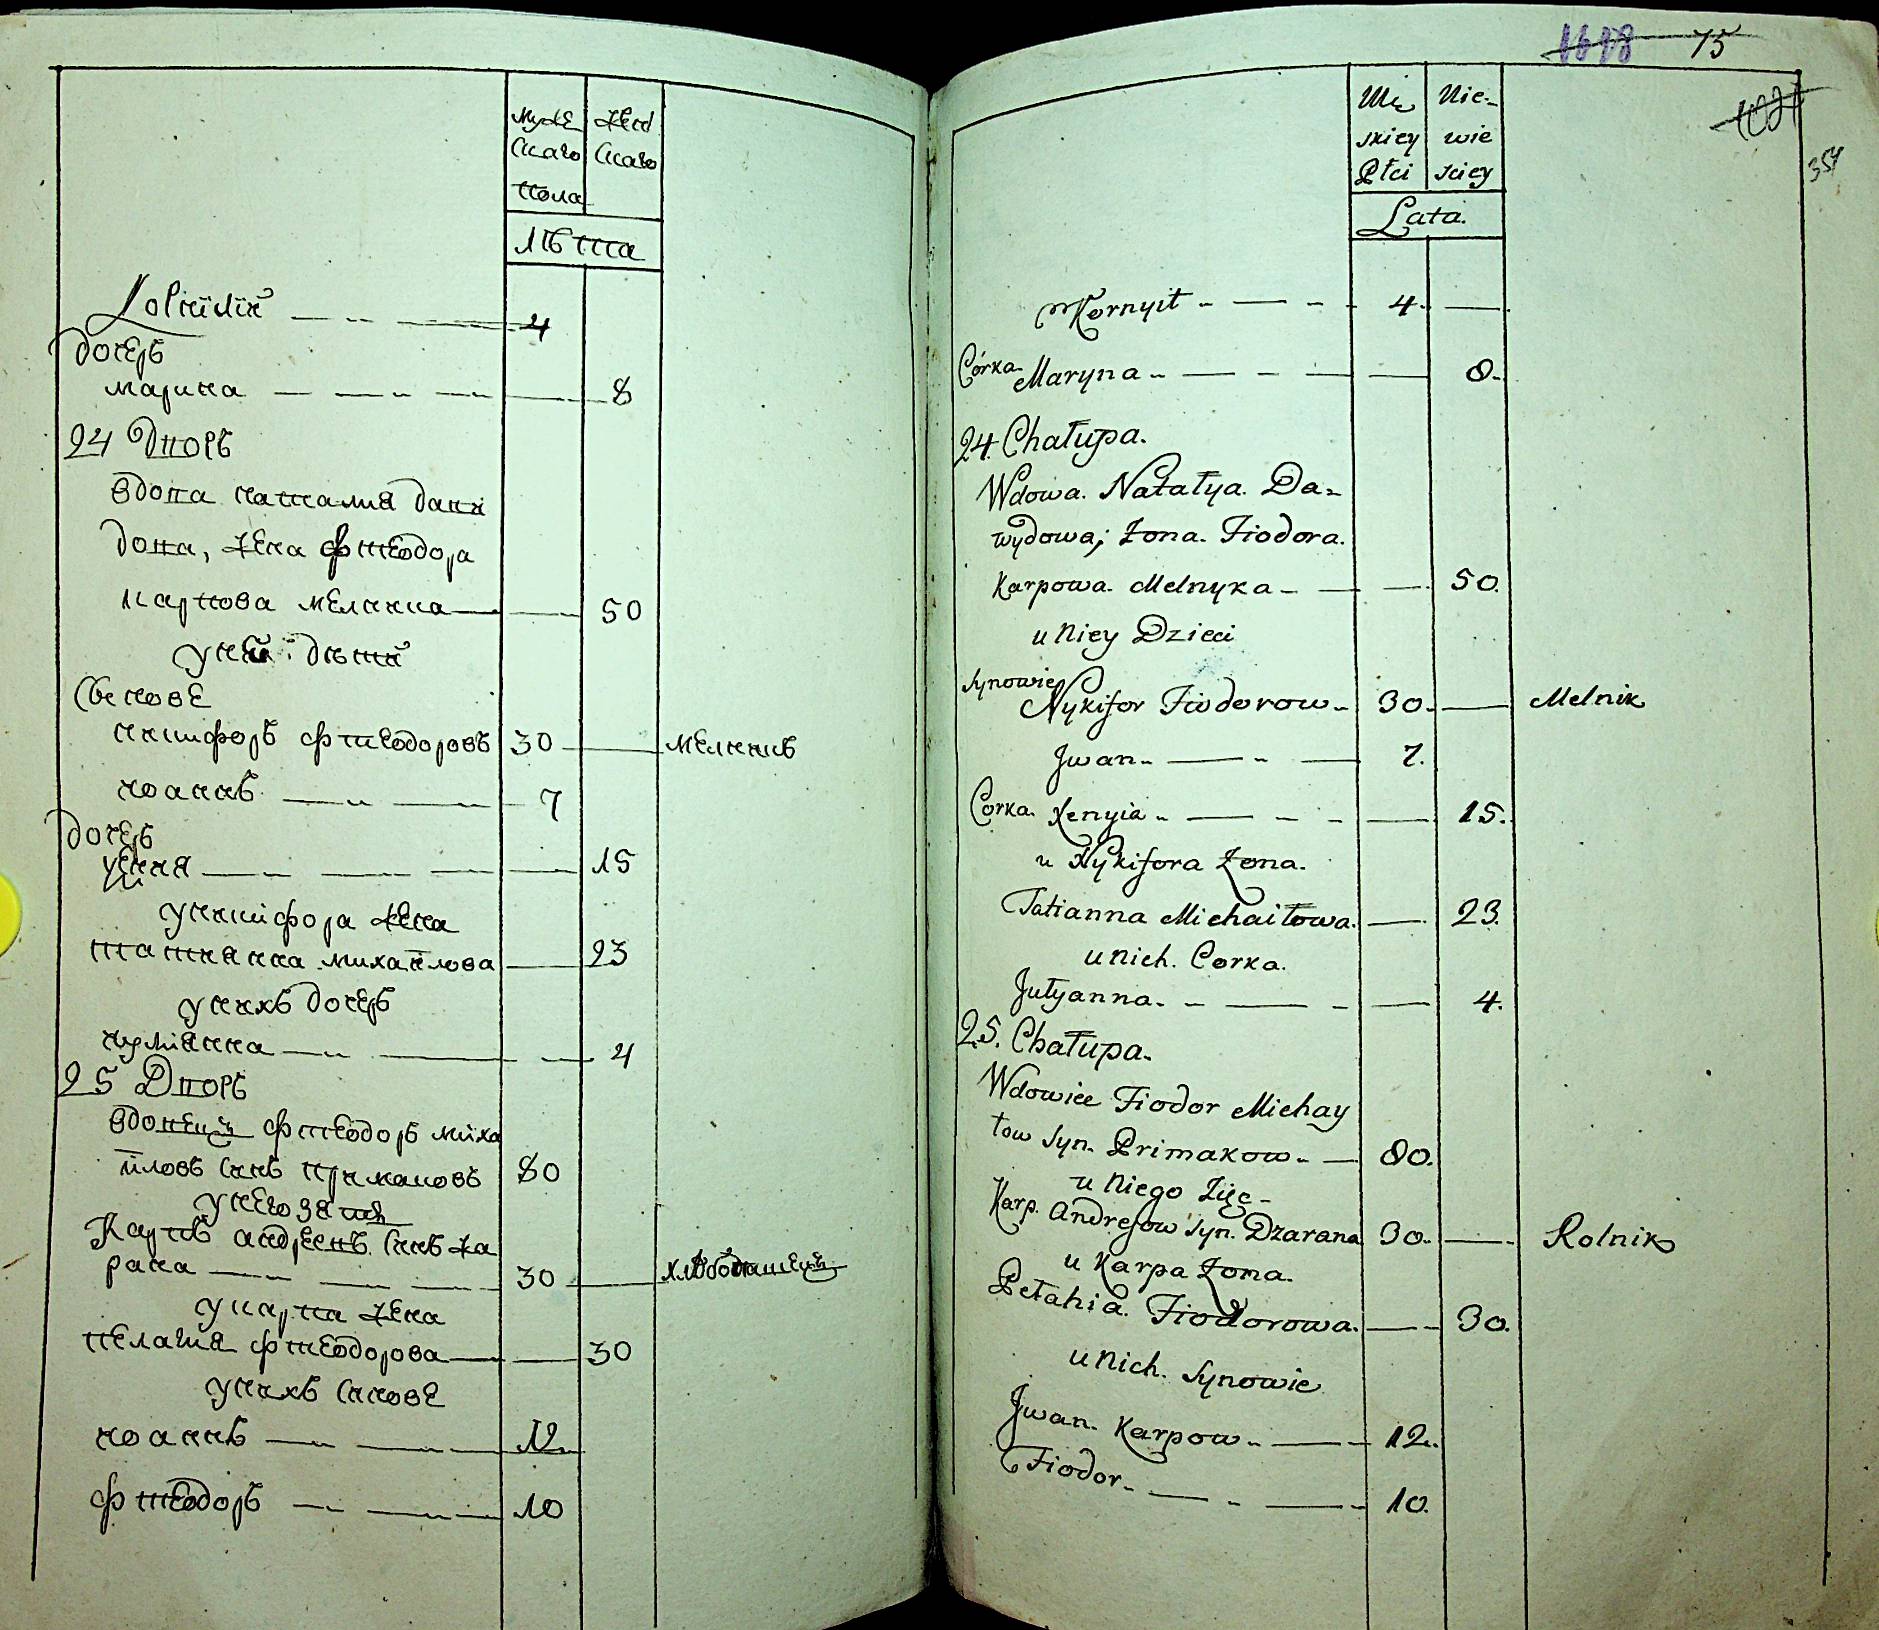 Муже
скаго
пола
Жен
скаго
Лѣта
Корнилий 4
дочерь
марина 8
24 Дворъ
вдова наталия дави
дова, жена фтеодора
карпова мелника 50
у ней дѣти
Сынове
никифоръ фтеодоровъ 30 мелникъ
иоаннъ 7
дочерь
ксения 15
у никифора жена
татиянна михайлова 23
у нихъ дочерь
иулиянна 4
25 Дворъ
вдовецъ фтеодоръ миха
йловъ синъ примаковъ 80
у него зять
Карпъ андреевъ синъ жа
рана 30 хлѣбопашецъ
у карпа жена
пелагия фтеодорова 30
у нихъ синове
иоаннъ 12
фтеодоръ 10
1618 75
354
Mę
skiey
Płci
Nie-
wie
sciey
Lata.
Kornyił 4.
Córka Maryna 8.
24. Chałupa.
Wdowa. Natałya. Da-
wydowa; Żona. Fiodora.
Karpowa. Melnyka 50.
u Niey Dzieci
Synowie
Nykifor Fiodorow 30. Melnik
Jwan 7.
Corka. Xenyia 15.
u Nykifora Żona.
Tatianna Michaiłowa. 23.
u nich. Corka.
Jułyanna. 4.
25. Chałupa.
Wdowiec Fiodor Michay
łow Syn. Primakow 80.
u Niego Zięć
Karp. Andrejow Syn. Dzarana 30. Rolnik
u Karpa Żona.
Pełahia. Fiodorowa. 30.
u Nich. Synowie
Jwan. Karpow 12.
Fiodor 10.